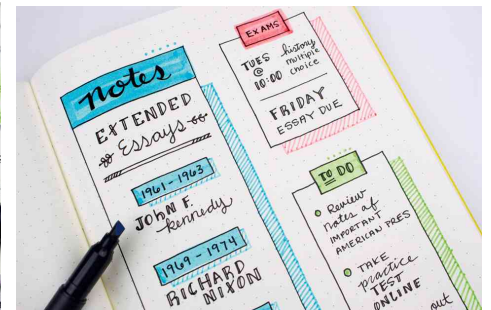 notes
EXTENDED
Essays
1961-1963
JOHN F.
Kennedy
1969-1974
RICHARD
NIXON
EXAMS
TUES history
@ multiple
10:00 choice
FRIDAY
ESSAY DUE
TO DO
Review
notes of
IMPORTANT
AMERICAN PRES
TAKE
practice
TEST
ONLINE
out